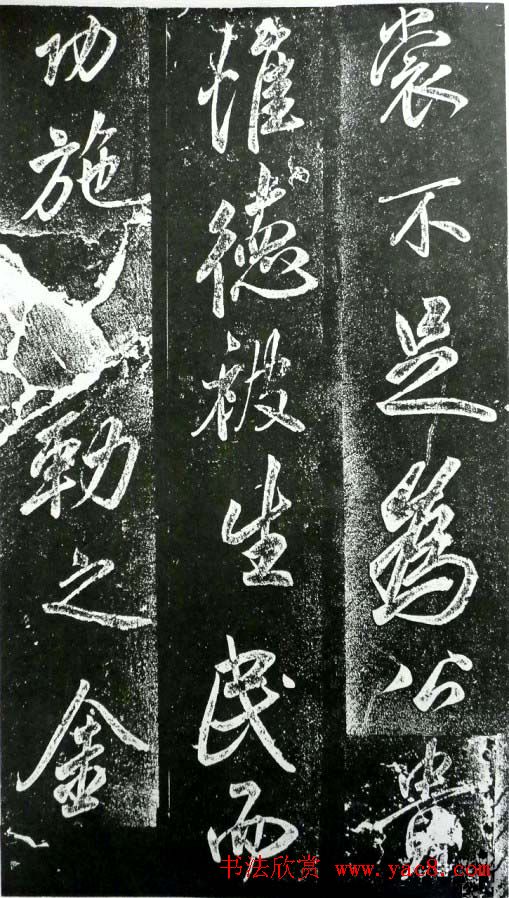 裳不足為公貴
惟德被生民而
功施勒之金
书法欣赏 www.yac8.com